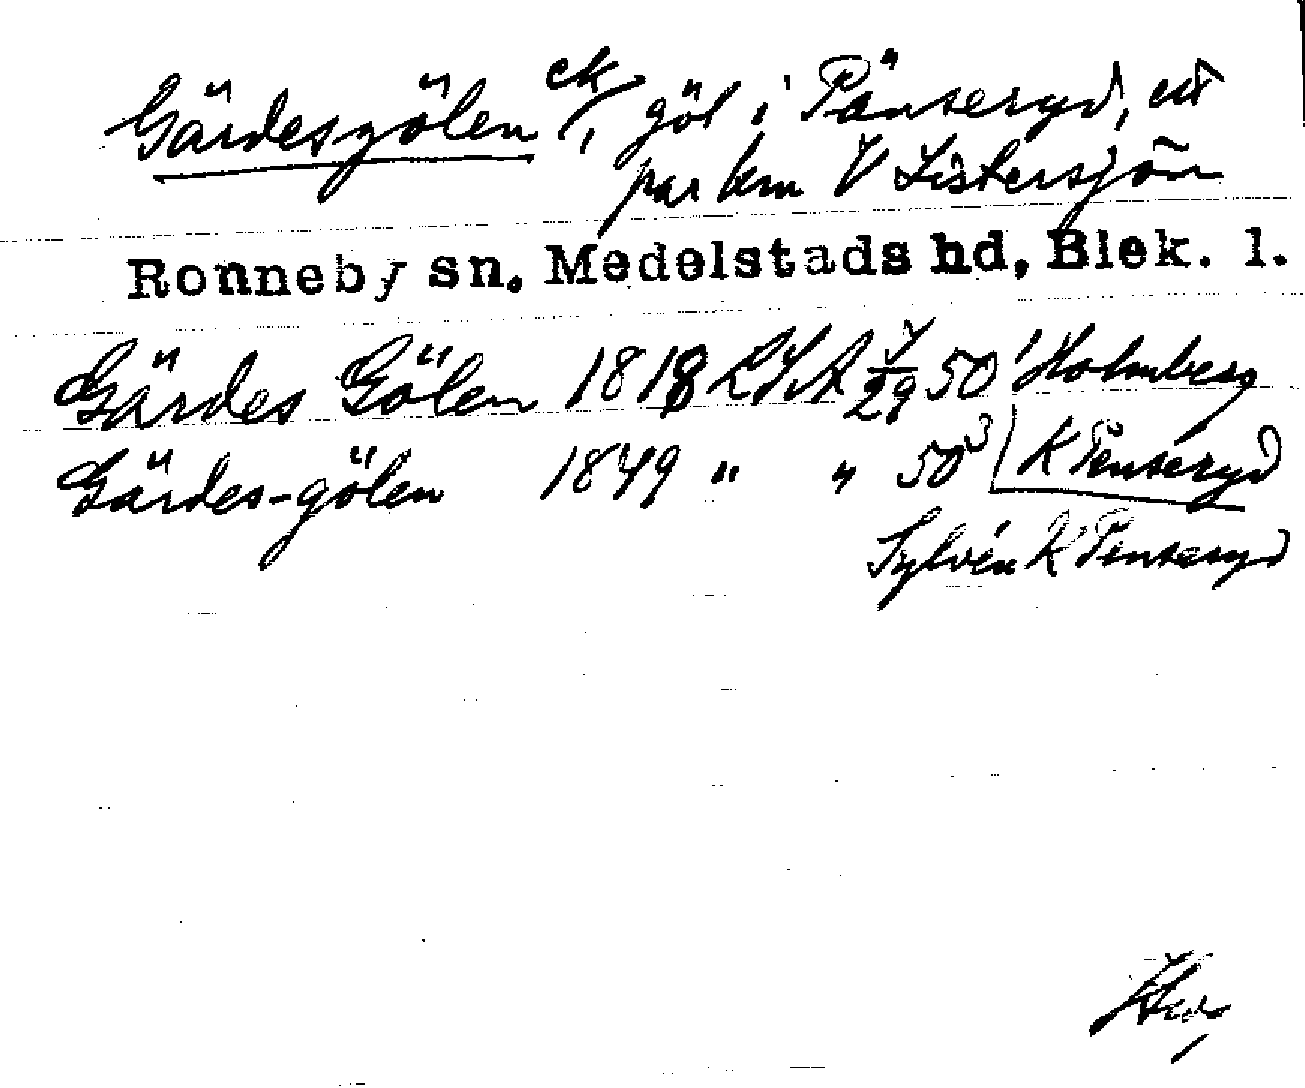 Gärdesgölen ek/, göl i Pänseryd, ett
par km V Listersjön
Ronneby sn. Medelstads hd, Blek. l.
Gärdes Gölen 1818 LSA V/29 50¹ Holmberg
Gärdes-gölen 1849 " " 50³ K Penseryd
Sylvén K Penseryd